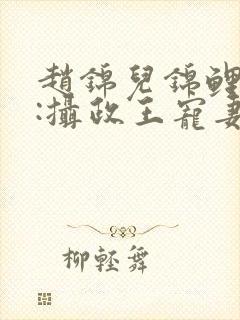 趙錦兒錦鯉
:攝政王寵妻
柳輕舞